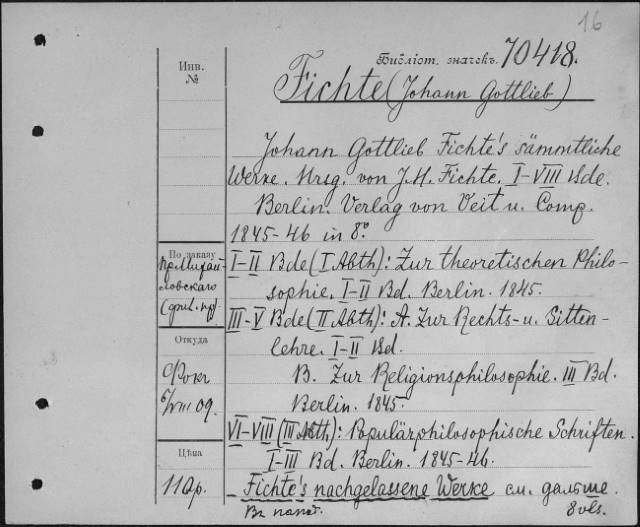 16
Библіот. значекъ. 70418.
Инв.
№
Fichte (Johann Gottlieb)
Johann Gottlieb Fichte's sämmtliche
Werke. Hrsg. von J. H. Fichte. I-VIII Bde.
Berlin. Verlag von Veit u. Comp.
1845-46 in 8°
По заказу
пр. Михай-
ловскаго
I-II Bde (I Abth): Zur theoretischen Philo-
sophie. I-II Bd. Berlin. 1845.
III-V Bde (II Abth): A. Zur Rechts- u. Sitten-
lehre. I-II Bd.
Откуда
Фокъ
6/VIII 09.
B. Zur Religionsphilosophie. III Bd.
Berlin. 1845.
VI-VIII (III Abth): Populärphilosophische Schriften.
I-III Bd. Berlin. 1845-46.
Цѣна
110р.
- Fichte's nachgelassene Werke см. дальше.
Въ папк.
8 vls.